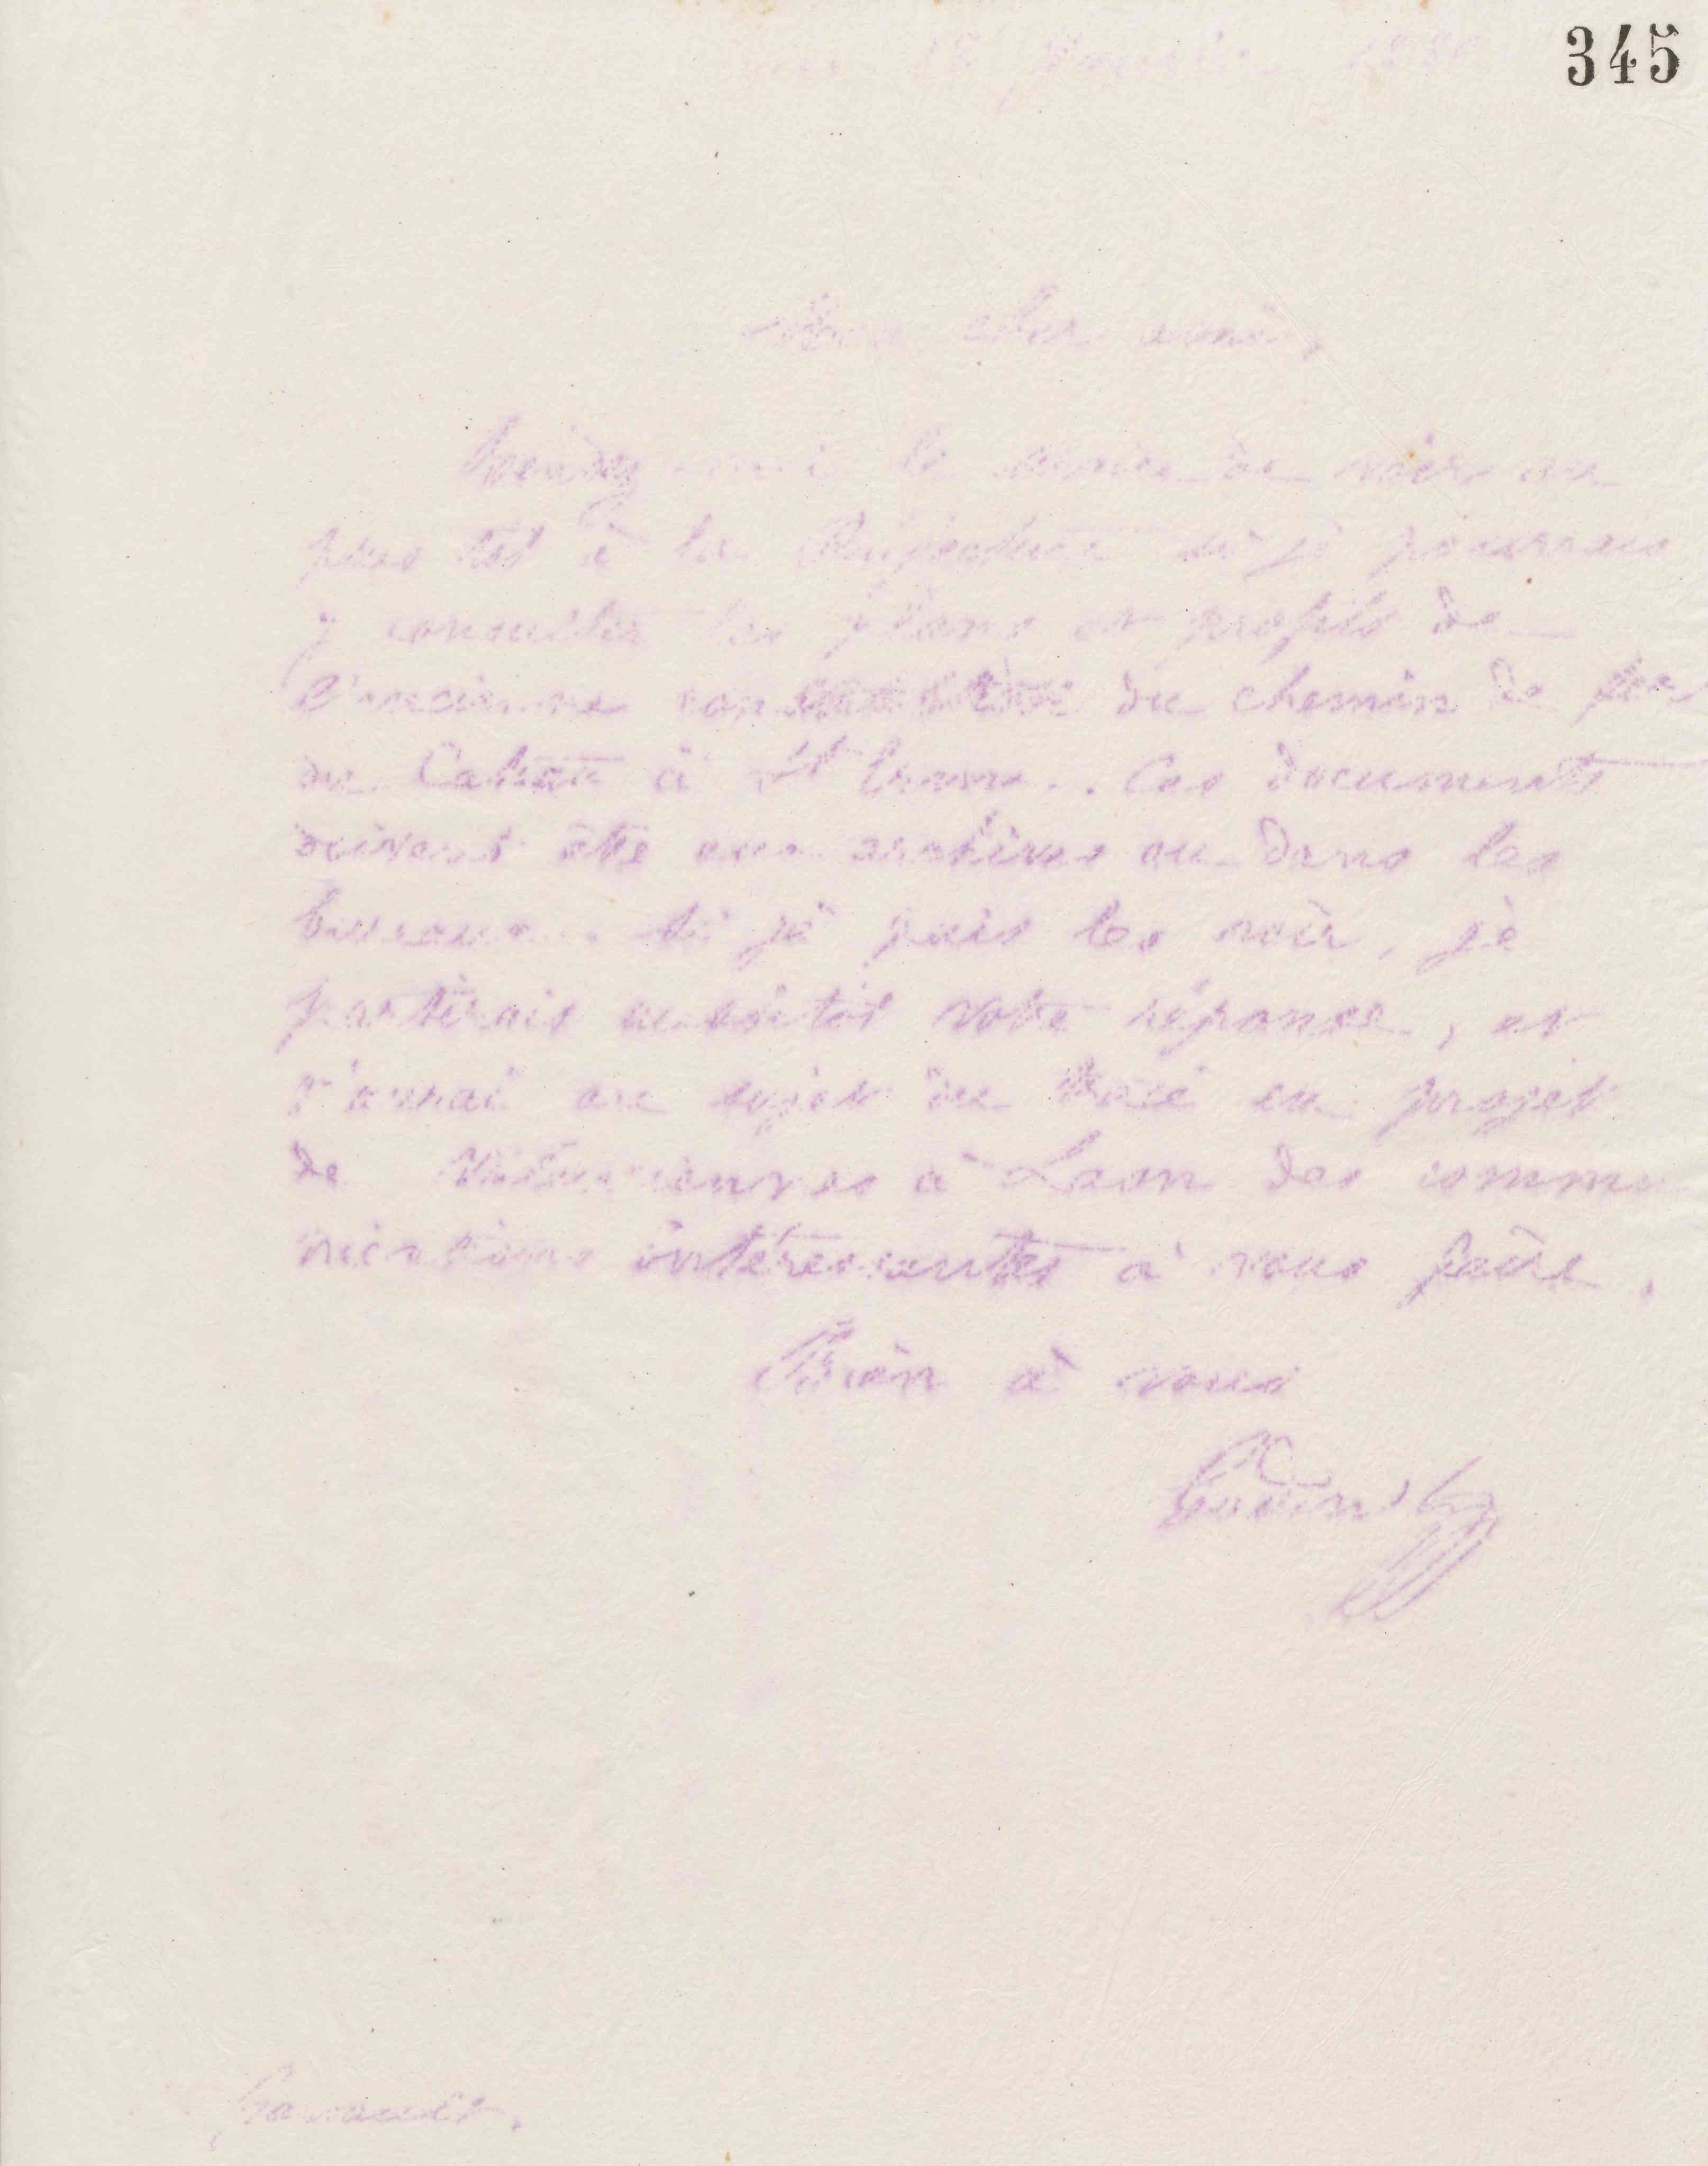 345
15 Janvier
Mon cher ami,
Rendez-moi le service de voir au
plus tôt à la Préfecture si je pourrais
y consulter les plans et profils de
l'ancienne du chemin de fer
du Cateau à St Erme. Ces documents
doivent être aux archives ou dans les
bureaux. Si je puis les voir, je
partirais aussitôt votre réponse, et
j'aurai au sujet du tracé en projet
de Valenciennes à Laon des commu
nications intéressantes à vous faire.
Bien à vous
Godin